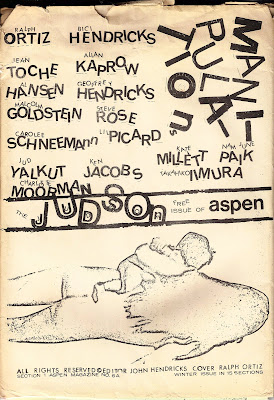 RALPH ORTIZ BICI HENDRICKS
MANI-
PULA-
TIONS
JEAN TOCHE ALLAN KAPROW
AL HANSEN GEOFFREY HENDRICKS
MALCOLM GOLDSTEIN STEVE ROSE
CAROLEE SCHNEEMANN LIL PICARD
KATE MILLETT NAM JUNE PAIK
JUD YALKUT KEN JACOBS TAKAHIKO IIMURA
CHARLOTTE MOORMAN
THE JUDSON FREE ISSUE OF aspen
ALL RIGHTS RESERVED © EDITOR JOHN HENDRICKS COVER RALPH ORTIZ
SECTION 1 ASPEN MAGAZINE NO. 6A WINTER ISSUE IN 15 SECTIONS